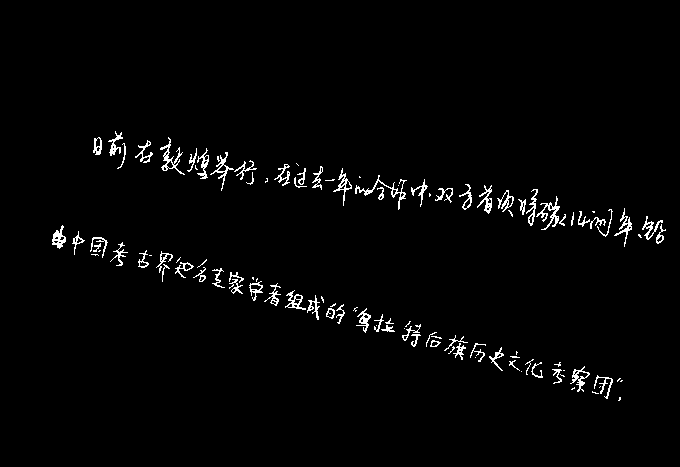 日前在敦煌举行,在过去一年的合作中,双方首次将碳14测年
中国考古界知名专家学者组成的"乌拉特后旗历史文化考察团",